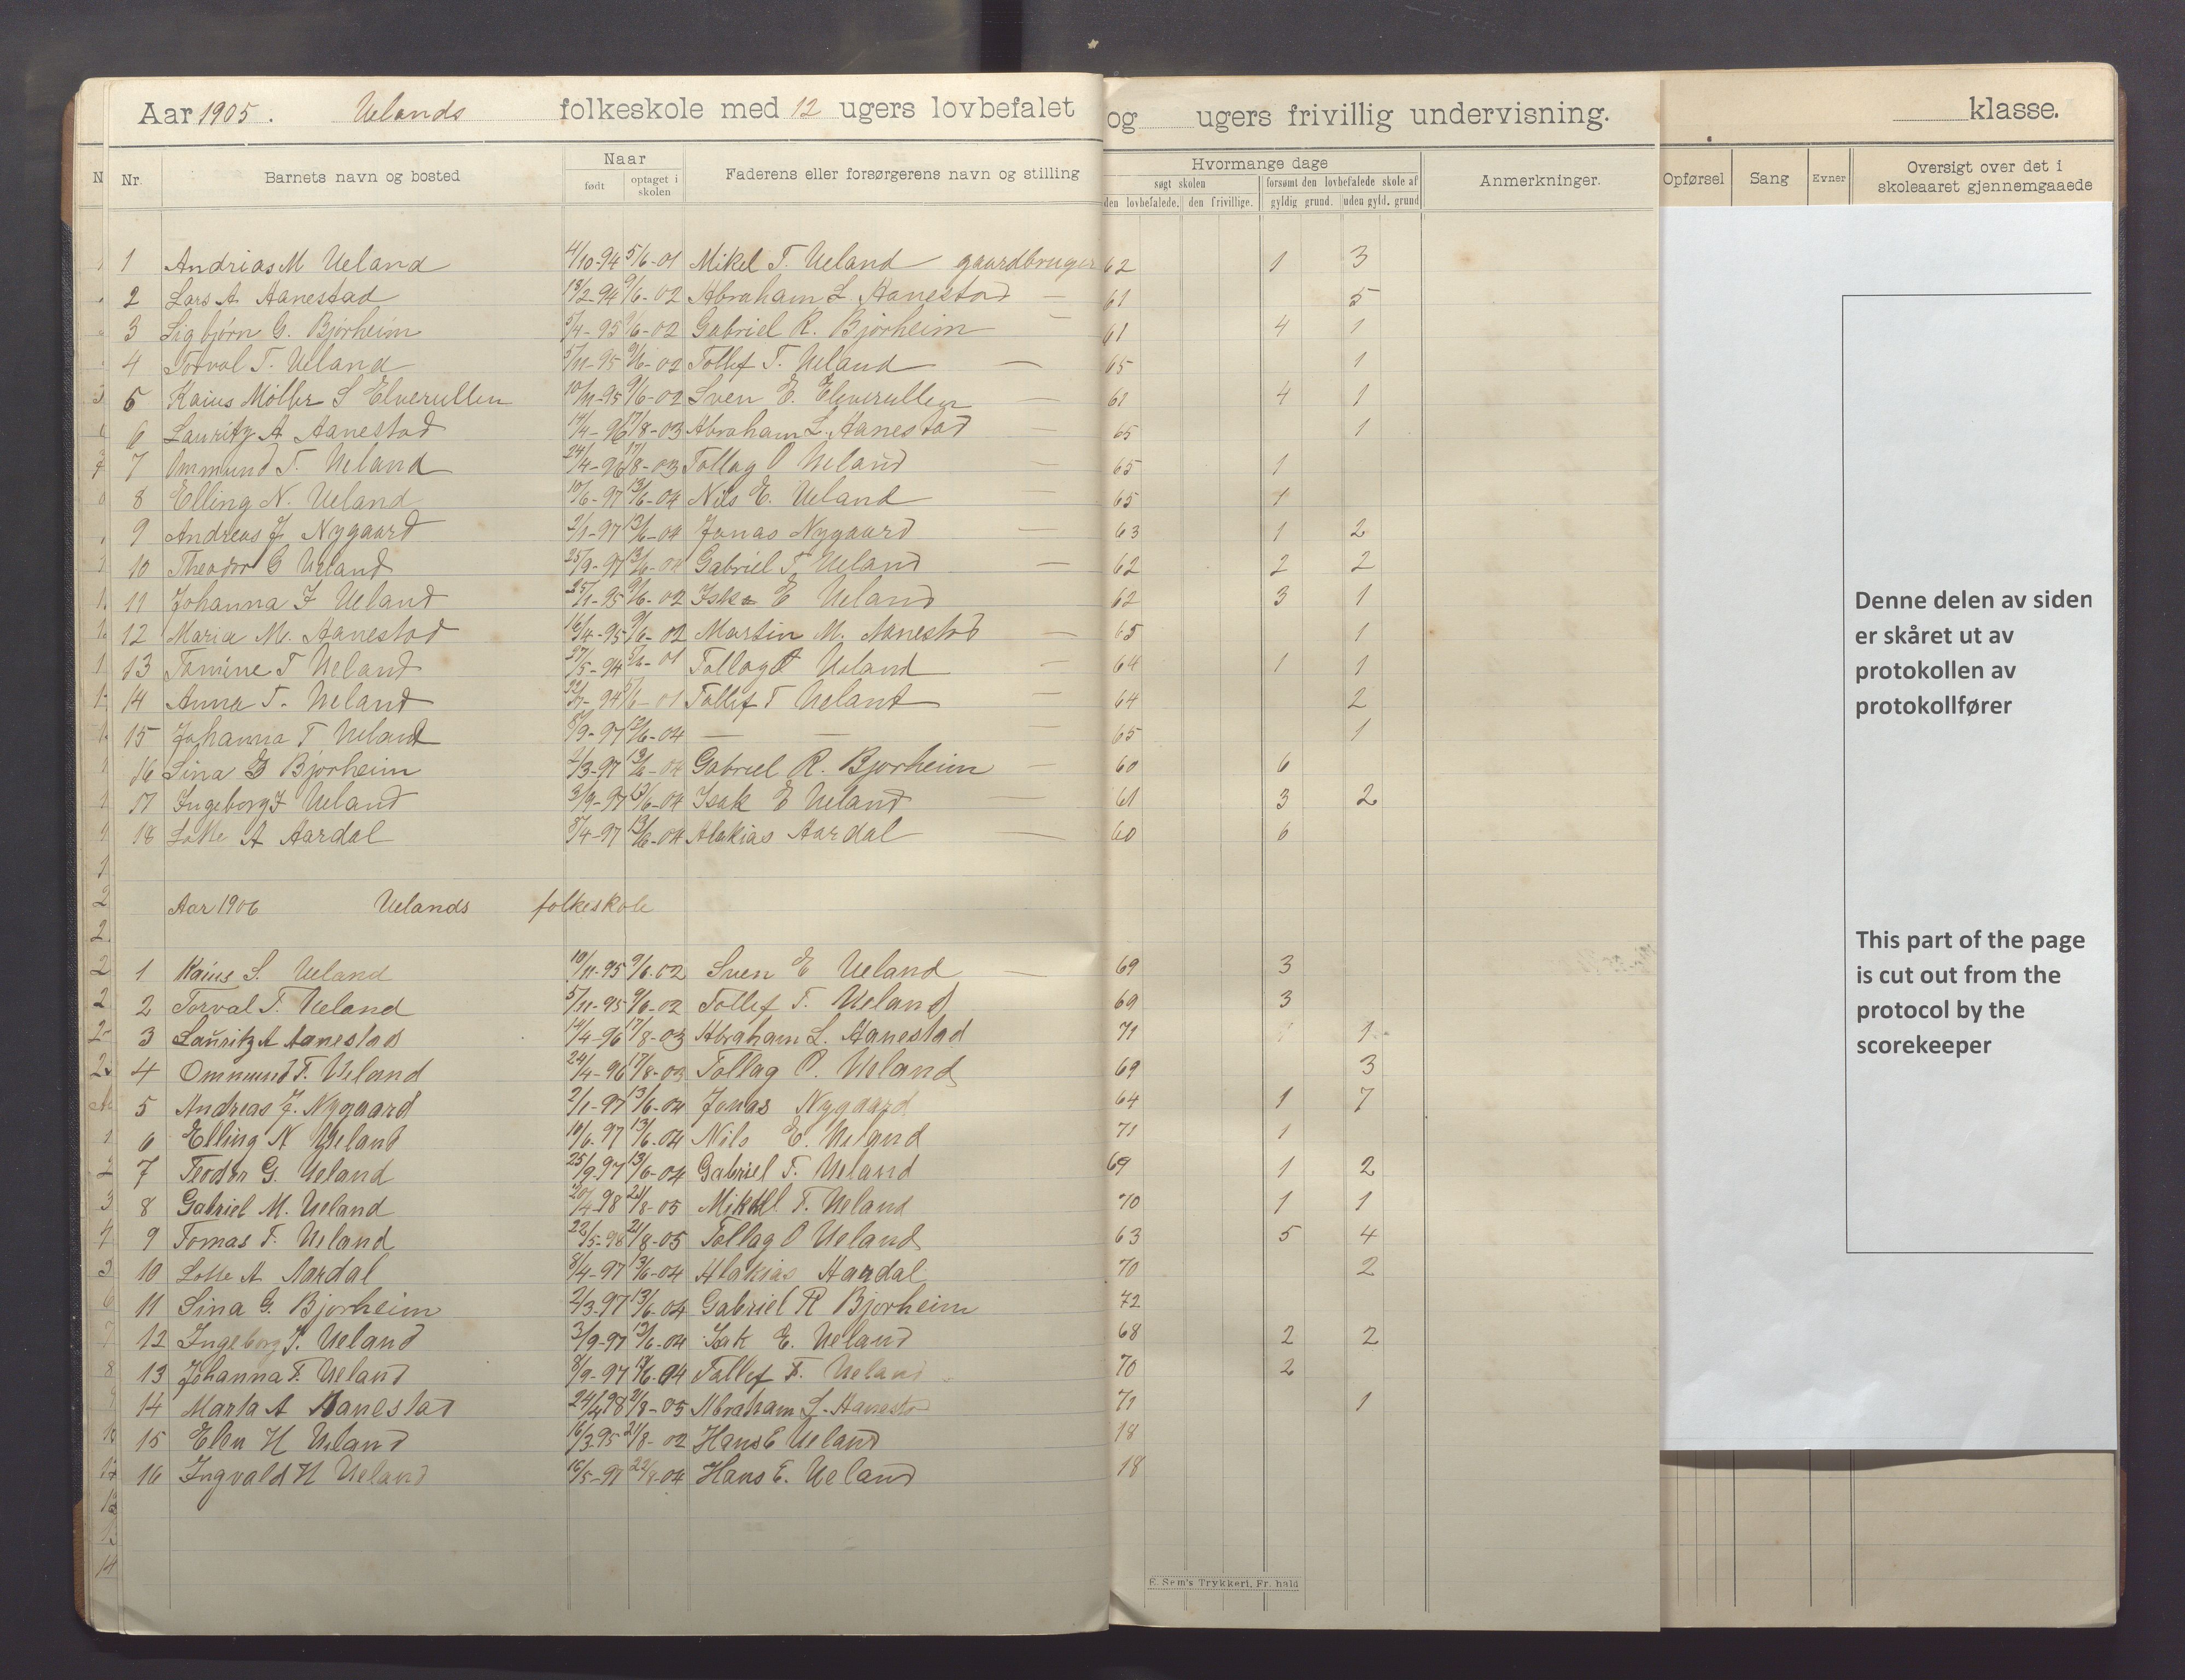 Aar 1905. Uelands folkeskole med 12 ugers lovbefalet og ugers frivillig undervisning. klasse.
Nr. Barnets navn og bosted Naar født optaget i skolen Faderens eller forsørgerens navn og stilling Hvormange dage søgt skolen den lovbefalede. den frivillige. forsømt den lovbefalede skole af gyldig grund. uden gyld. grund Anmerkninger. Opførsel Sang Evner Oversigt over det i skoleaaret gjennemgaaede
1 Andrias M Ueland 4/10-94 5/6-01 Mikel T. Ueland gaardbruger 62 1 3
2 Lars A Aanestad 18/2-94 9/6-02 Abraham L. Aanestad — 61 5
3 Sigbjørn G. Bjørheim 5/4-95 9/6-02 Gabriel R. Bjørheim — 61 4 1
4 Torval T. Ueland 5/11-95 9/6-02 Tollef T. Ueland — 65 1
5 Kaius Møller S Elverullen 10/11-95 9/6-02 Sven E. Elverullen — 61 4 1
6 Lauritz A Aanestad 14/4-96 17/8-03 Abraham L. Aanestad — 65 1
7 Ommund T. Ueland 24/4-96 17/8-03 Tollag O Ueland — 65 1
8 Elling N. Ueland 10/6-97 13/6-04 Nils E. Ueland — 65 1
9 Andreas J Nygaard 2/1-97 13/6-04 Jonas Nygaard — 63 1 2
10 Theodor G Ueland 25/9-97 13/6-04 Gabriel T. Ueland — 62 2 2
11 Johanna I Ueland 25/1-95 9/6-02 E Ueland 62 3 1
12 Maria M. Aanestad 16/4-95 9/6-02 Martin M. Aanestad — 65 1
13 Tomine T Ueland 27/5-94 5/6-01 Tollag O Ueland — 64 1 1
14 Anna T. Ueland 94 5/6-01 Tollef T Ueland — 64 2
15 Johanna T Ueland 8/9-97 13/6-04 — — 65 1
16 Sina G Bjørheim 2/3-97 13/6-04 Gabriel R. Bjorheim — 60 6
17 Ingeborg I Ueland 3/9-97 13/6-04 Isak E Ueland — 61 3 2
18 Lotte A Aardal 8/4-97 13/6-04 Alakias Aardal — 60 6
Aar 1906 Uelands folkeskole
1 Kaius S. Ueland 10/11-95 9/6-02 Sven E Ueland — 69 3
2 Torval T. Ueland 5/11-95 9/6-02 Tollef T. Ueland 69 3
3 Lauritz A Aanestad 14/4-96 17/8-03 Abraham L. Aanestad 71 1 1
4 Ommund T. Ueland 24/4-96 17/8-03 Tollag O. Ueland 69 3
5 Andreas J. Nygaard 2/1-97 13/6-04 Jonas Nygaard 64 1 7
6 Elling N Ueland 10/6-97 13/6-04 Nils E. Ueland 71 1
7 Teodor G. Ueland 25/9-97 13/6-04 Gabriel T. Ueland 69 1 2
8 Gabriel M. Ueland 20/4-98 21/8-05 Mikkel T. Ueland 70 1 1
9 Tomas T. Ueland 22/5-98 21/8-05 Tollag O Ueland 63 5 4
10 Lotte A Aardal 8/4-97 13/6-04 Alakias Aardal 70 2
11 Sina G. Bjorheim 2/3-97 13/6-04 Gabriel R Bjorheim 72
12 Ingeborg I. Ueland 3/9-97 13/6-04 Isak E. Ueland 68 2 2
13 Johanna T. Ueland 8/9-97 13/6-04 Tollef T. Ueland 70 2
14 Marta A Aanestad 24/4-98 21/8-05 Abraham L. Aanestad 71 1
15 Elen H Ueland 16/3-95 21/8-02 Hans E Ueland 18
16 Ingvald H Ueland 15/5-97 22/8-04 Hans E. Ueland 18
E. Sem's Trykkeri, Fr.hald
Denne delen av siden
er skåret ut av
protokollen av
protokollfører
This part of the page
is cut out from the
protocol by the
scorekeeper